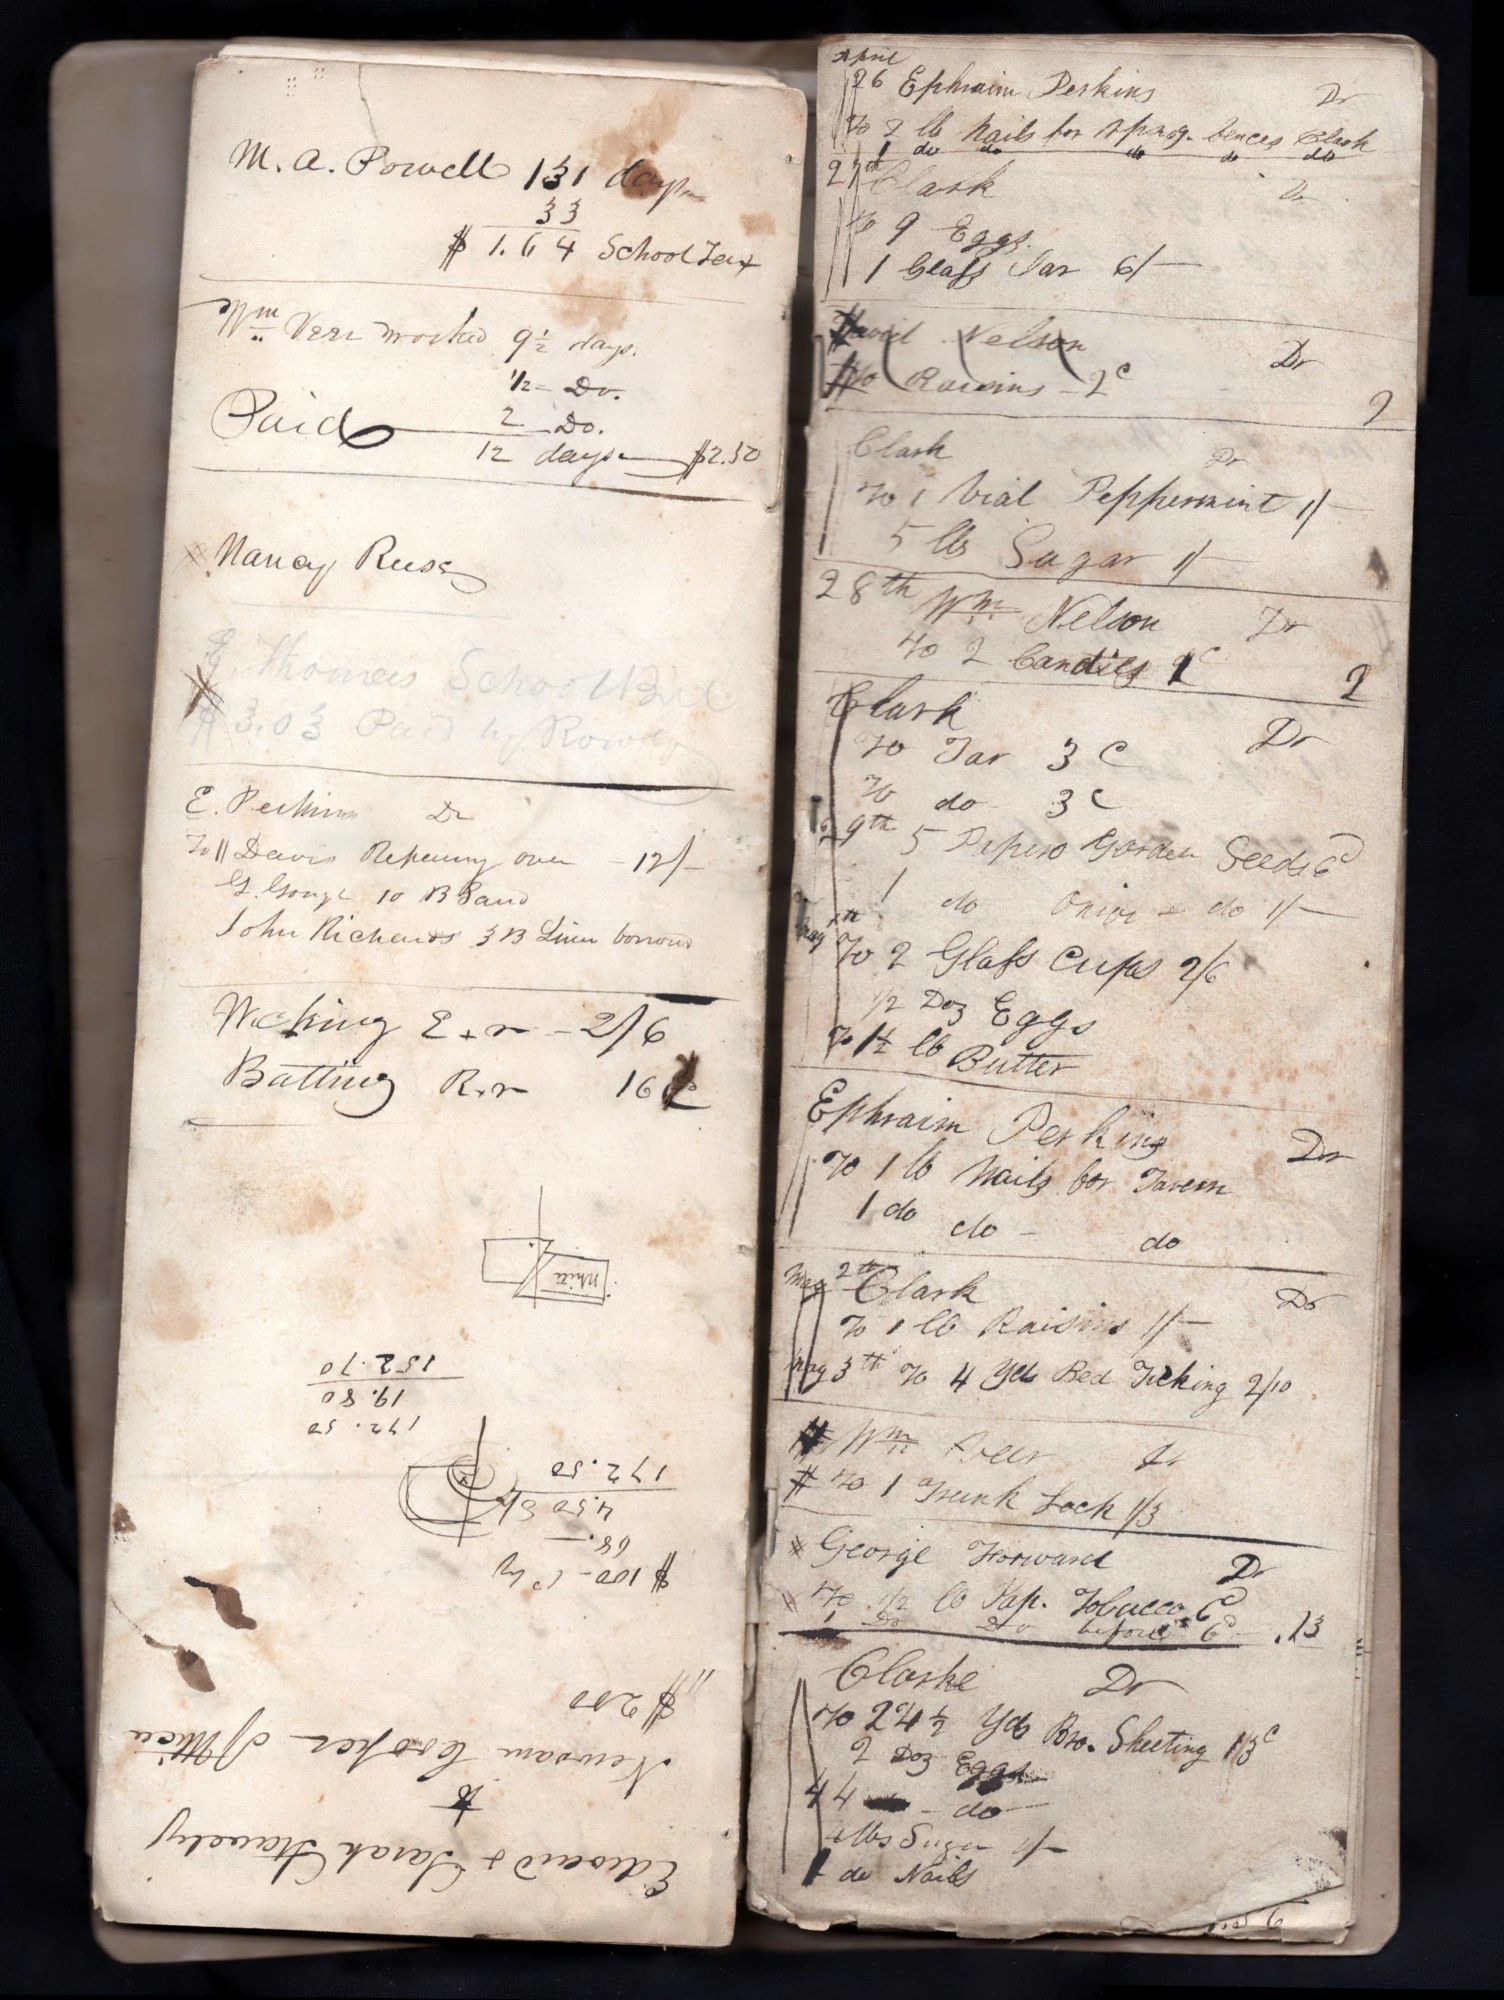 M. A. Powell 131 days
33
$ 1.64 School Tax
Wm Veer worked 9 1/2 days.
1/2 Do.
2 Do.
Paid 12 days $2.50
Nancy Russ
Thomas School Bill
$ 3.03 Paid by
E. Perkins Dr
To Davis Repairing oven - 12/-
G. Gouge 10 B Sand
John Richards 3 B Lime borrowed
Wicking E + r - 2/6
Batting R.r 16 c
White
152.70
19.80
172.50
172.50
4.50
68.-
$ 100 -
$ 200
Newsam
to
Edward & Sarah
April
26 Ephraim Perkins Dr
To 2 lb Nails for fences Clark
1 do do do do do
27th Clark Dr
To 9 Eggs.
1 Glass Jar 6/-
David Nelson Dr
To Raisins - 2c 2
Clark Dr
To 1 Vial Peppermint 1/-
5 lbs Sugar 1/-
28th Wm Nelson Dr
To 2 Candies 1c 2
Clark Dr
To Tar 3 c
To do 3 c
29th 5 Papers Garden Seeds 6d
1 do Onion - do 1/-
May 1st
To 2 Glass Cups 2/6
1/2 Doz Eggs
To 1 1/2 lb Butter
Ephraim Perkins Dr
To 1 lb Nails for Tavern
1 do do - do
May 2th Clark Dr
To 1 lb Raisins 1/-
May 3th To 4 Yds Bed Ticking 2/10
Wm Veer Dr
To 1 Trunk Lock 1/3
George Forward Dr
To 1/2 lb Pap. Tobacco 6d
1 Do Do before 6d - .13
Clarke Dr
To 24 1/2 Yds Bro. Sheeting 13c
2 Doz Eggs
4 4 - do
4 lbs Sugar 1/-
1 do Nails